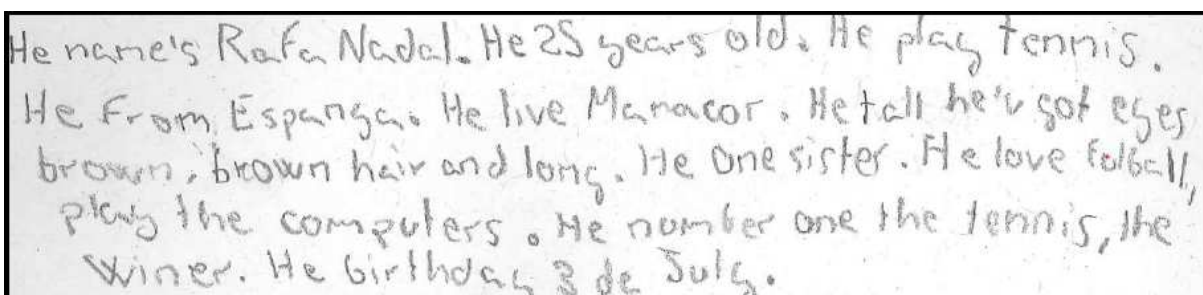 He name's Rafa Nadal. He 25 years old. He play tennis.
He From Espanya. He live Manacor. He tall he'v got eyes
brown, brown hair and long. He one sister. He love fotball,
play the computers. He number one the tennis, the
winer. He birthday 3 de July.